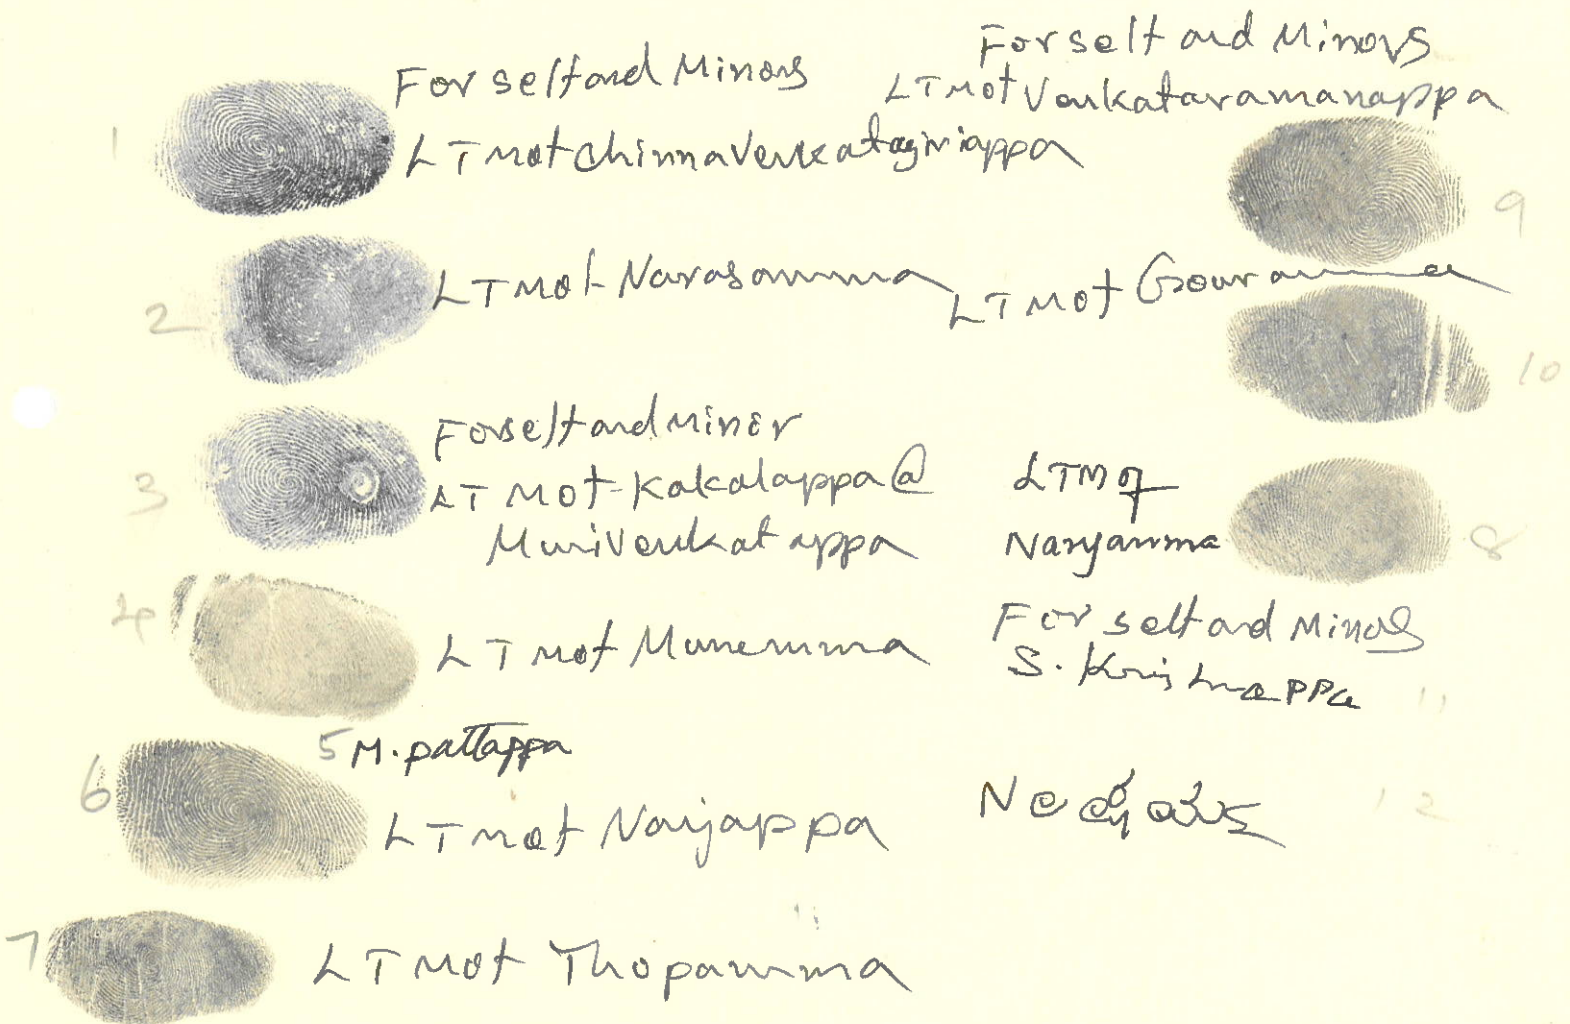 1
For self and Minors
LTM of Chinnavenkatagiriappa
2
LTM of Narasamma
3
For self and Minor
LTM of Kakalappa @
Munivenkatappa
4
LTM of Munemma
5 M. pattappa
6
LTM of Nanjappa
7
LTM of Thopamma
For self and Minors
LTM of Venkataramanappa
9
LTM of Gouramma
10
LTM of
Nanjamma
8
For self and Minors
S. Krishnappa
11
12